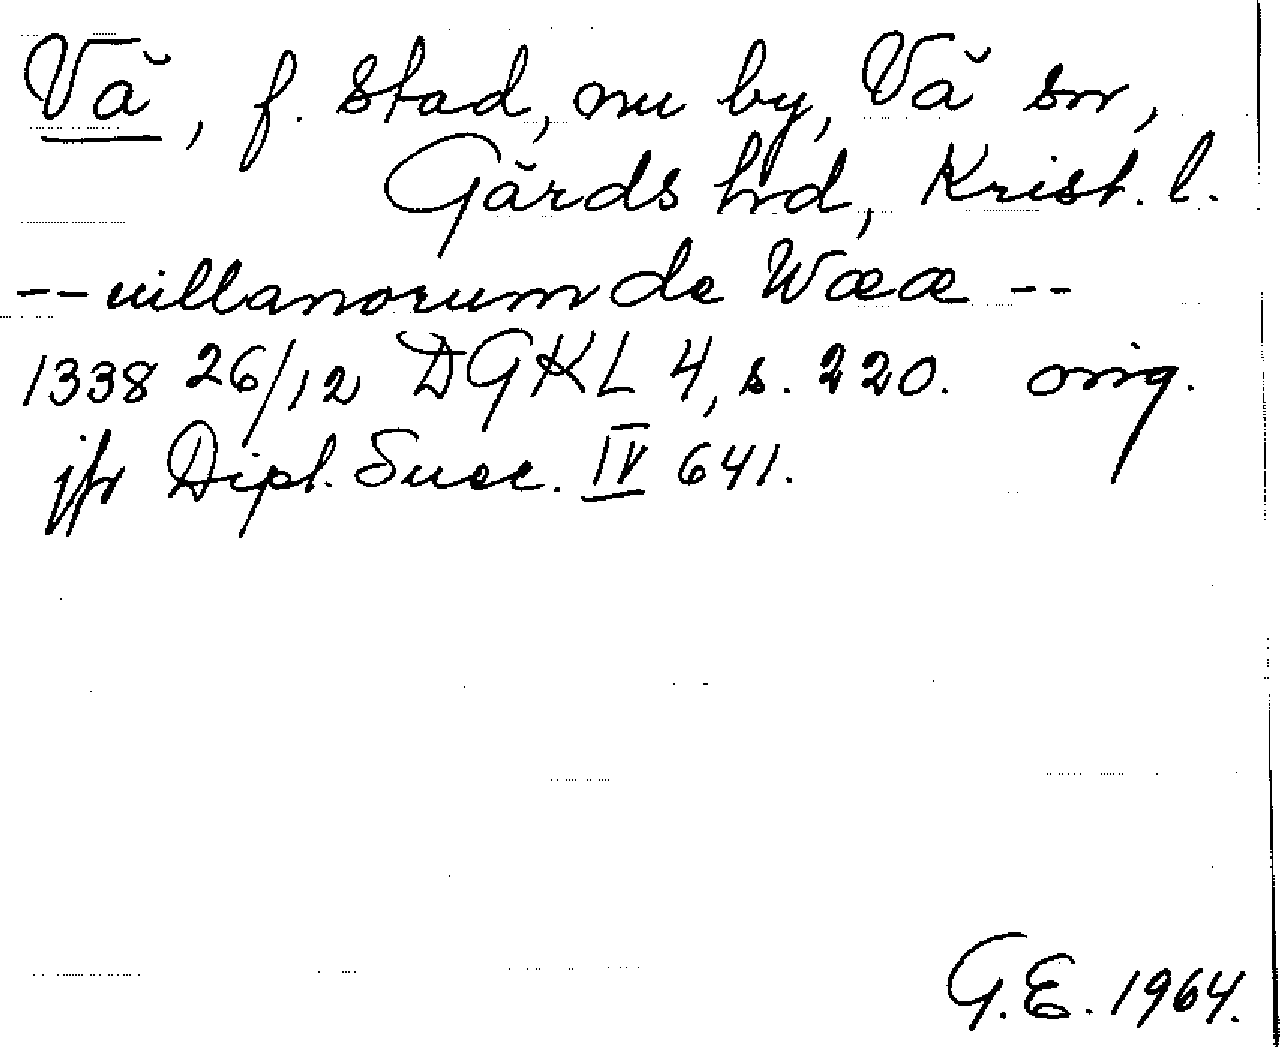 Vå, f. stad, nu by, Vå sn,
Gärds hrd, Krist. l.
-- uillanorum de Wææ --
1338 26/12 DGKL 4, s. 220. orig.
jfr Dipl. Suec. IV 641.
G.E. 1964.